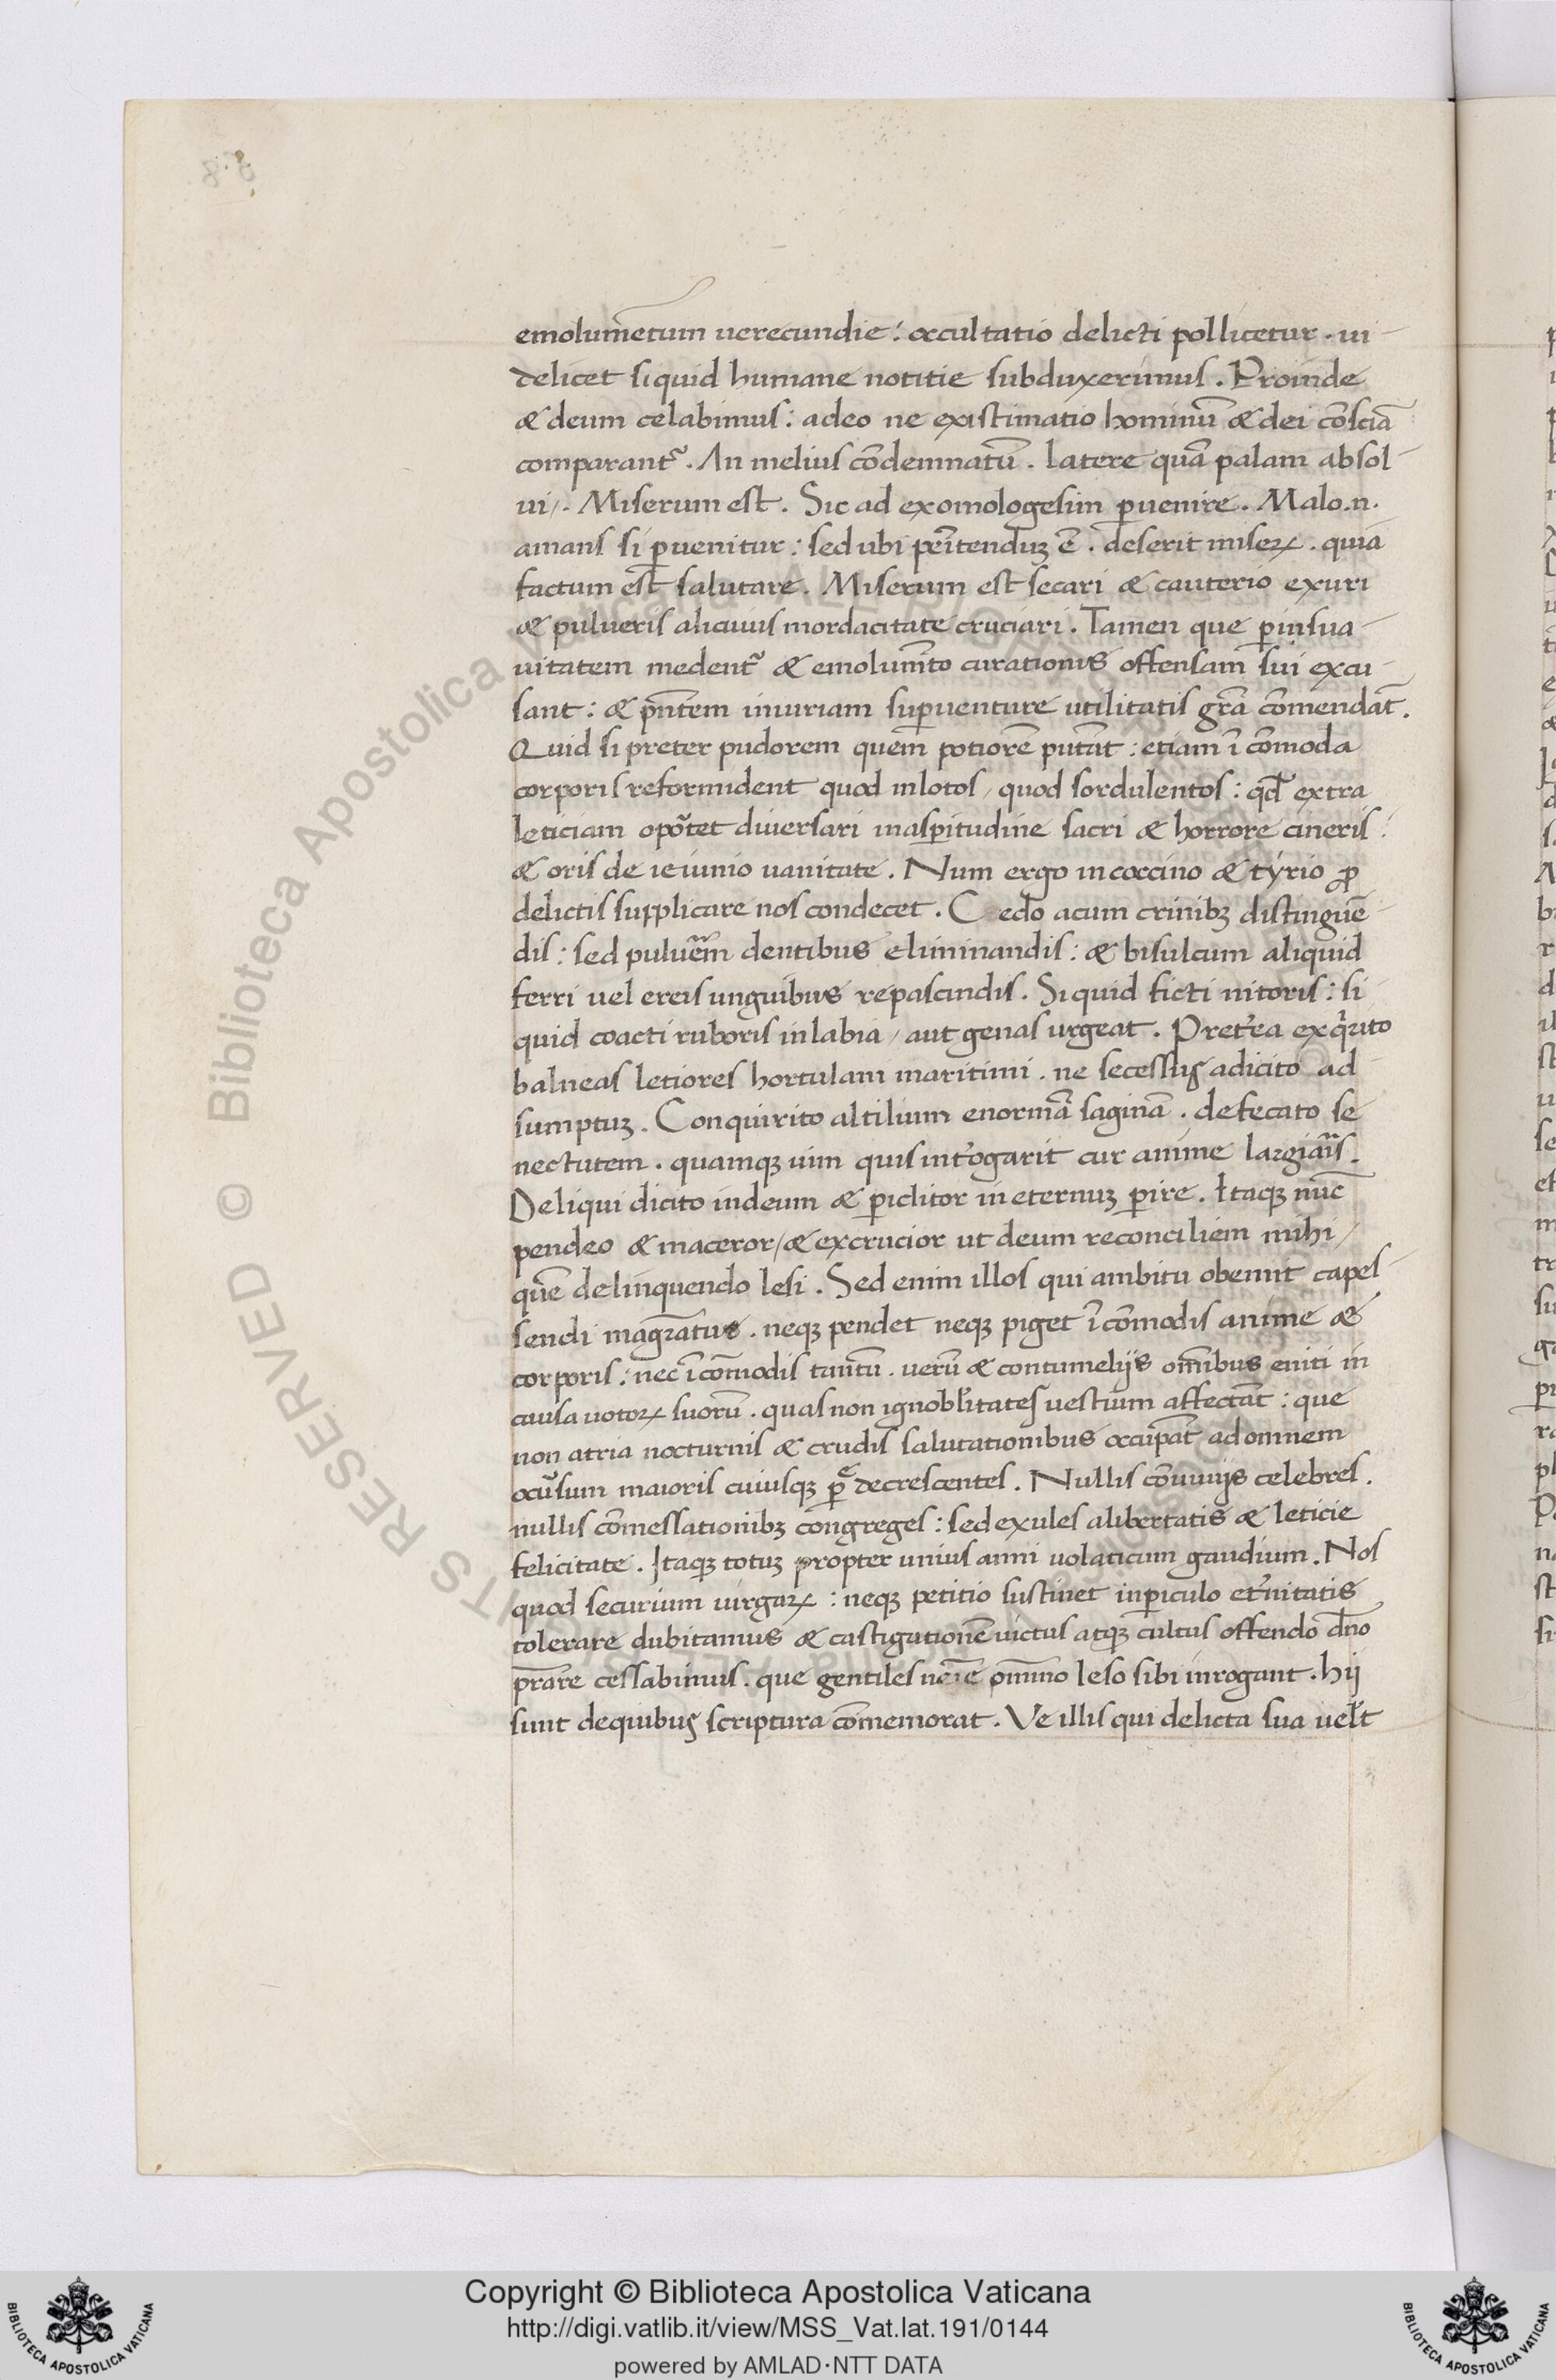 emolumētum uerecundie: occultatio delicti pollicetur. ui-
delicet siquid humane notitie subduxerimus. Proinde
& deum celabimus: adeo ne existimatio hominū & dei cōsciā
comparant᷑. An melius cōdemnatū. latere quā palam absol-
ui. Miserum est. Sic ad exomologesim ꝑuenire. Malo.n.
amans si ꝑuenitur: sed ubi pēitenduꝫ ē. deserit miseꝝ. quia
factum est salutare. Miserum est secari & cauterio exuri
& pulueris alicuius mordacitate cruciari. Tamen que ꝑ insua-
uitatem medent᷑ & emolumto curationis offensam sui excu-
sant: & pn̄tem iniuriam suꝑuenture utilitatis grā cōmendāt.
Quid si preter pudorem quem potiorē putāt: etiam ī cōmoda
corporis reformident quod inlotos / quod sordulentos: qd̄ extra
leticiam oportet diuersari inasꝑitudine sacri & horrore cineris:
& oris de ieiunio uanitate. Num ergo in coccino & tyrio ꝓ
delictis supplicare nos condecet. Cedo acum crinibꝫ distinguē-
dis: sed puluerem dentibus eliminandis: & bisulcum aliquid
ferri uel ereis unguibus repascindis. Siquid ficti nitoris: si
quid coacti ruboris in labia / aut genas urgeat. Pretea exqrito
balneas letiores hortulani maritimi. ne secessus adicito ad
sumptuꝫ. Conquirito altilium enormā saginā. defecato se
nectutem. quamqꝫ uim quis intogarit cur anime largiaris.
Deliqui dicito indeum & ꝑiclitor in eternuꝫ ꝑire. Itaqꝫ nūc
pendeo & maceror / & excrucior ut deum reconciliem mihi /
quē delinquendo lesi. Sed enim illos qui ambitu obeunt capes-
sendi magratus. neqꝫ pendet neqꝫ piget ī cōmodis anime &
corporis: nec ī cōmodis tantū. uerū & contumelijs omībus eniti in
causa uotoꝝ suorū. quas non ignoblitates uestium affectāt: que
non atria nocturnis & crudis salutationibus occupāt ad omnem
ocusum maioris cuiusqꝫ ꝑ decrescentes. Nullis cōuiuijs celebres.
nullis cōmessationibꝫ cōngreges: sed exules alibertatis & leticie
felicitate. Itaqꝫ totuꝫ propter unius anni uolaticum gaudium. Nos
quod securium uirgaꝝ: neqꝫ petitio sustinet inꝑiculo etnitatis
tolerare dubitamus & castigationē uictus atqꝫ cultus offendo dn̄o
prare cessabimus. que gentiles omīno leso sibi inrogant. hij
sunt dequibus scriptura cōmemorat. Ve illis qui delicta sua uelt
Copyright © Biblioteca Apostolica Vaticana
http://digi.vatlib.it/view/MSS_Vat.lat.191/0144
powered by AMLAD·NTT DATA